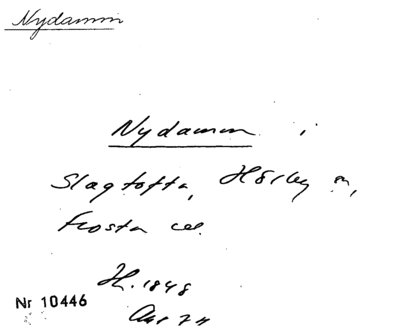 Nydamm
Nydamm i
Slagtofta, Hörby sn,
Frosta
H. 1848
Nr 10446